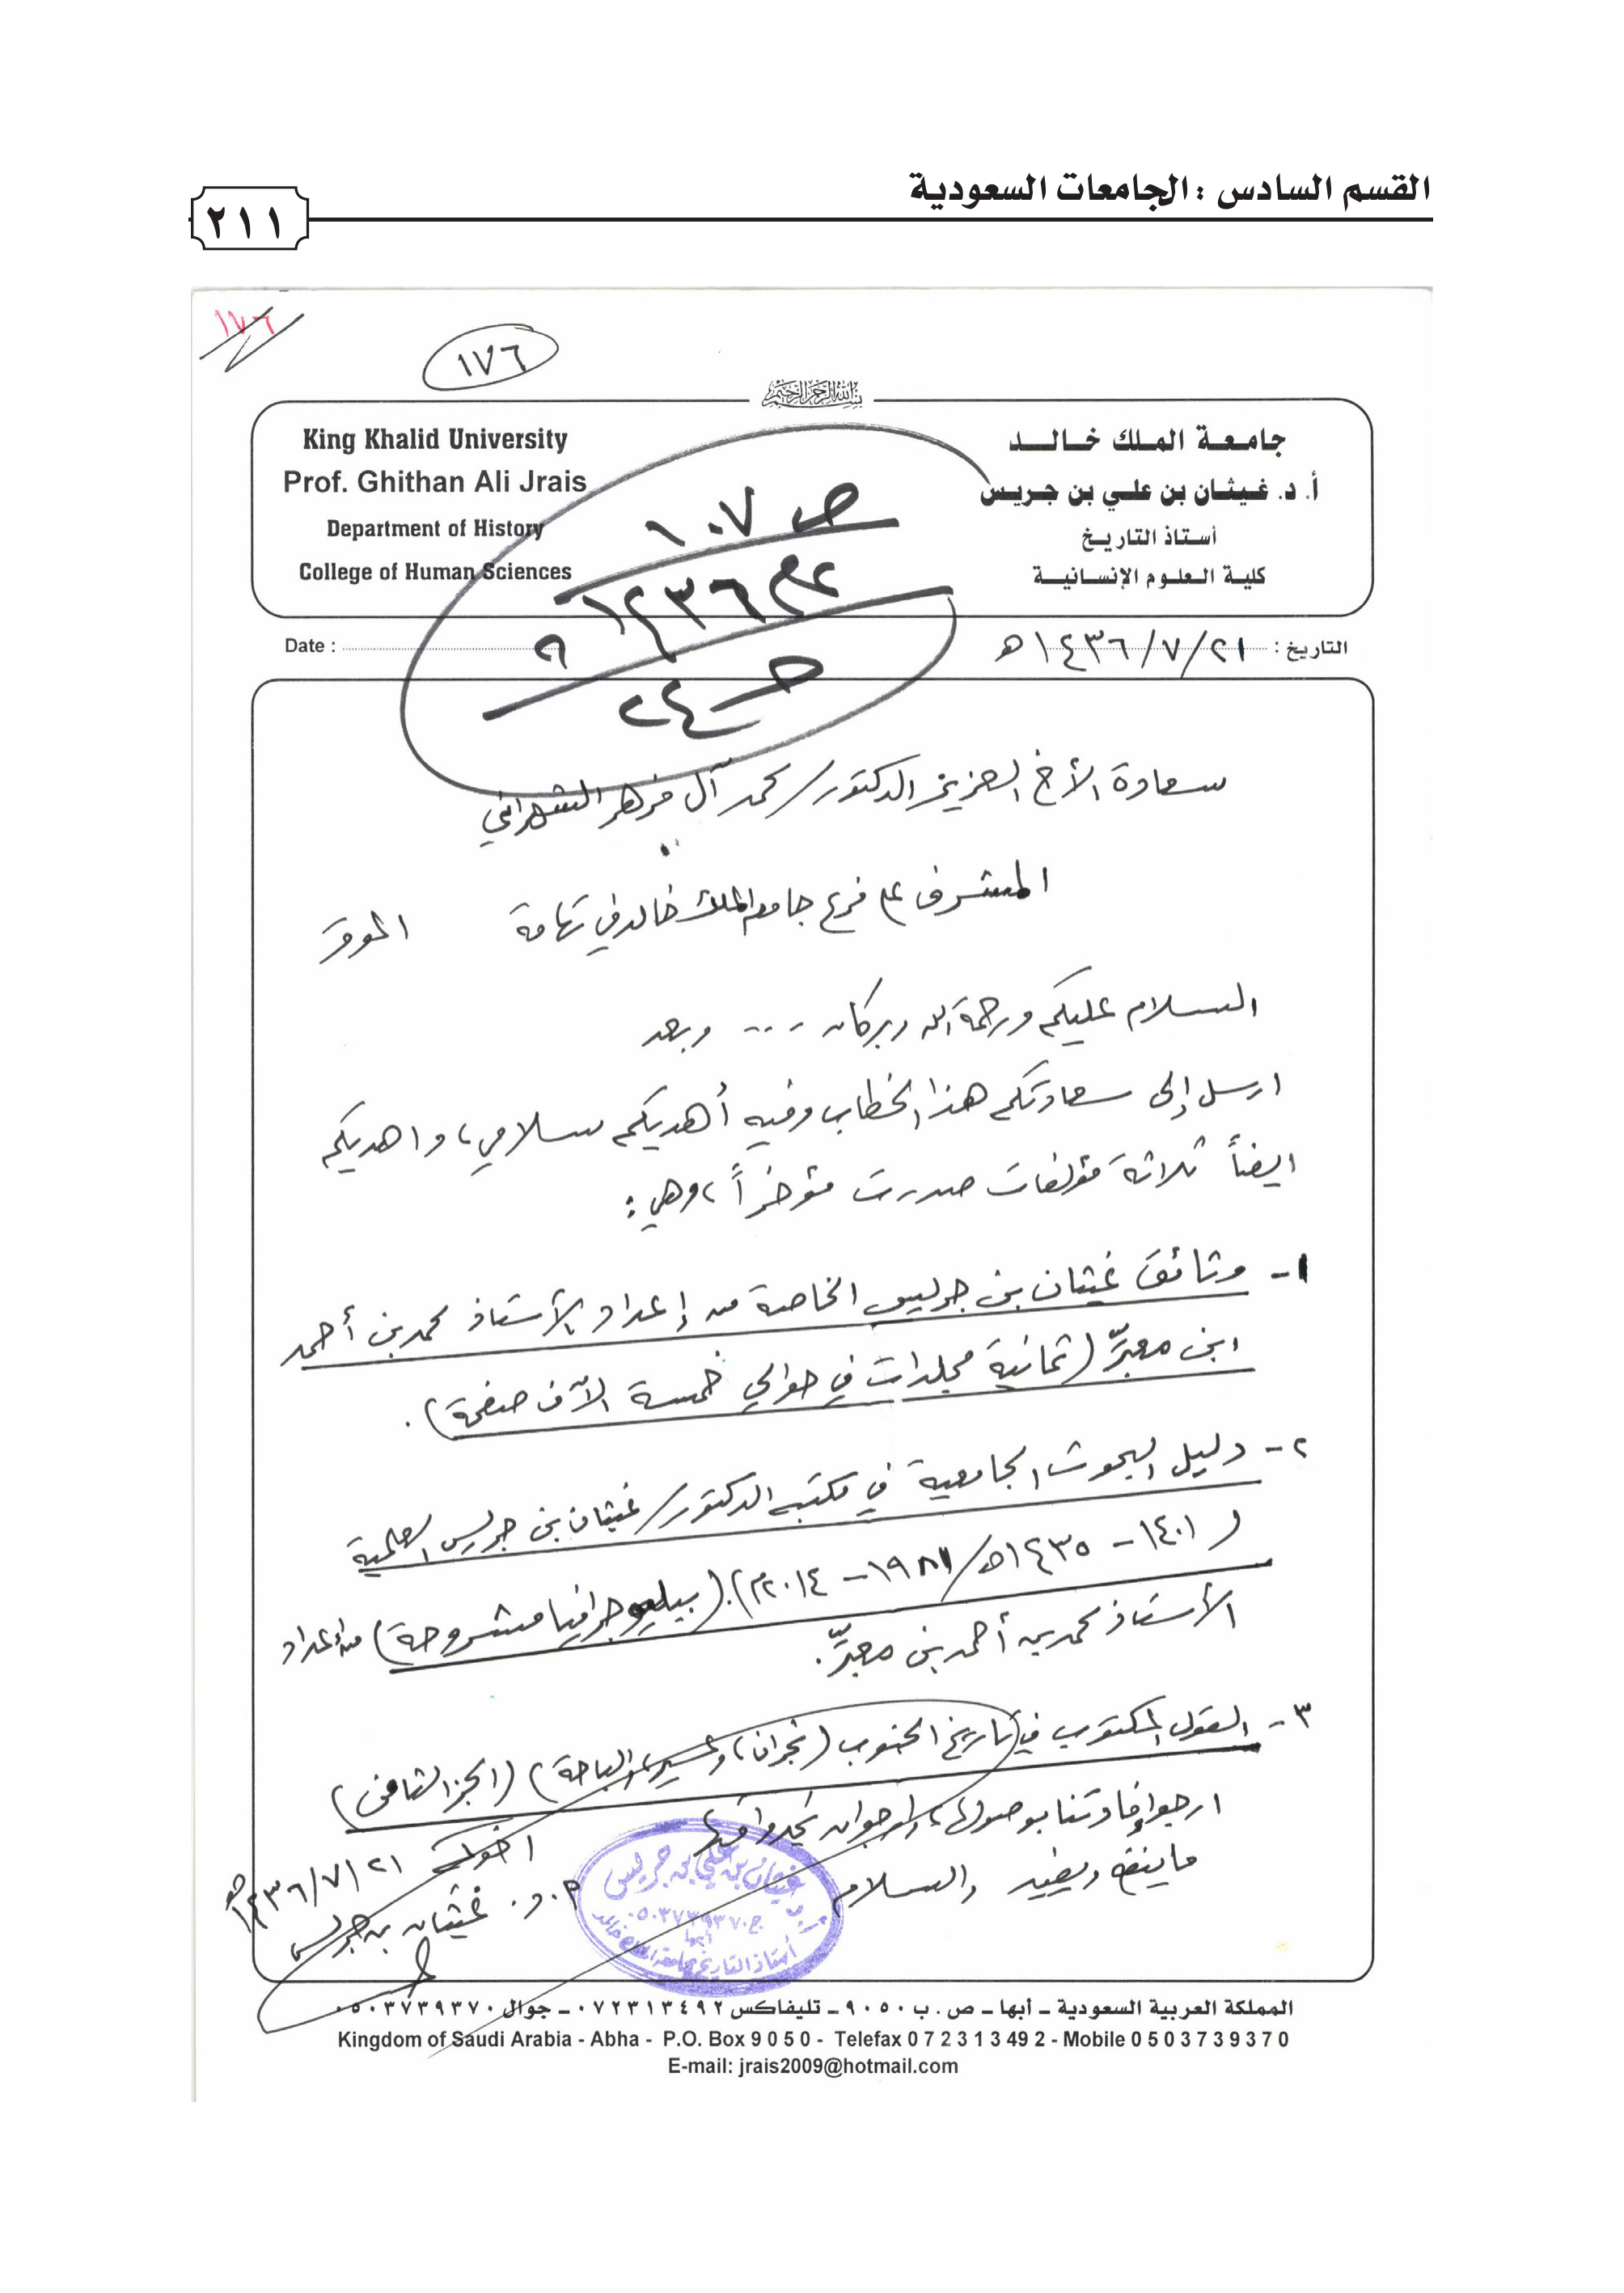 القسم السادس : الجامعات السعودية
٢١١
١٧٦
١٧٦
بسم الله الرحمن الرحيم
King Khalid University
Prof. Ghithan Ali Jrais
Department of History
College of Human Sciences
جامعة الملك خالد
أ. د. غيثان بن علي بن جريس
أستاذ التاريخ
كلية العلوم الإنسانية
ص ١٠٧
١٤٣٦
٢٤
Date :
التاريخ : ٢١/٧/١٤٣٦هـ
سعادة الأخ العزيز الدكتور/ محمد آل مزهر الشهراني
المشرف على فرع جامعة الملك خالد في تهامة الموقر
السلام عليكم ورحمة الله وبركاته .... وبعد
ارسل إلى سعادتكم هذا الخطاب وفيه أهديكم سلامي، واهديكم
ايضاً ثلاثة مؤلفات صدرت مؤخراً، وهي :
١- وثائق غيثان بن جريس الخاصة من إعداد الأستاذ محمد بن أحمد
ابن معبّر (ثمانية مجلدات في حوالي خمسة الآف صفحة).
٢- دليل البحوث الجامعية في مكتبة الدكتور/ غيثان بن جريس العلمية
(١٤٠١- ١٤٣٥هـ/ ١٩٨١- ٢٠١٤م). (بيليوجرافيا مشروحة) من إعداد
الأستاذ محمد بن أحمد بن معبّر.
٣- القول المكتوب في تاريخ الجنوب (نجران، وعسير، والباحة) (الجزء الثامن)
ارجوا إفادتنا بوصولها، وارجوا ان تجدوا فيها
ما ينفع ويفيد والسلام
اخوكم ٢١/٧/١٤٣٦هـ
أ.د. غيثان بن جريس
أ.د. غيثان بن علي بن جريس
ج.٠٥٠٣٧٣٩٣٧٠
أبها
أستاذ التاريخ بجامعة الملك خالد
المملكة العربية السعودية - أبها - ص. ب ٩٠٥٠ - تليفاكس ٠٧٢٣١٣٤٩٢ - جوال ٠٥٠٣٧٣٩٣٧٠
Kingdom of Saudi Arabia - Abha - P.O. Box 9 0 5 0 - Telefax 0 7 2 3 1 3 49 2 - Mobile 0 5 0 3 7 3 9 3 7 0
E-mail: jrais2009@hotmail.com